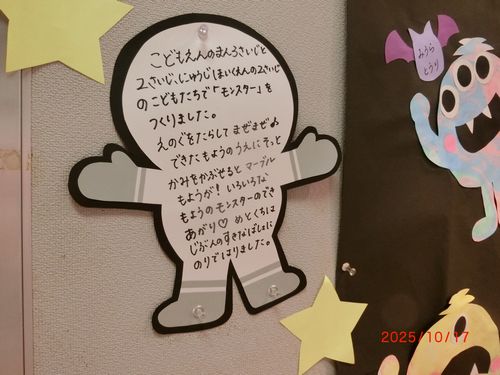 こどもえんのまん3さいじと
2さいじ、にゅうじほいくえんの2さいじ
のこどもたちで「モンスター」を
つくりました。
えのぐをたらしてまぜまぜ♪
できたもようのうえにそっと
かみをかぶせるとマーブル
もようが！いろいろな
もようのモンスターのでき
あがり♡めとくちは
じぶんのすきなばしょに
のりではりました。
みうら
とうり
2025/10/17